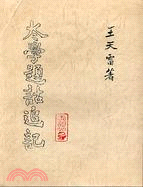 王天雷著
岑學題詁追記